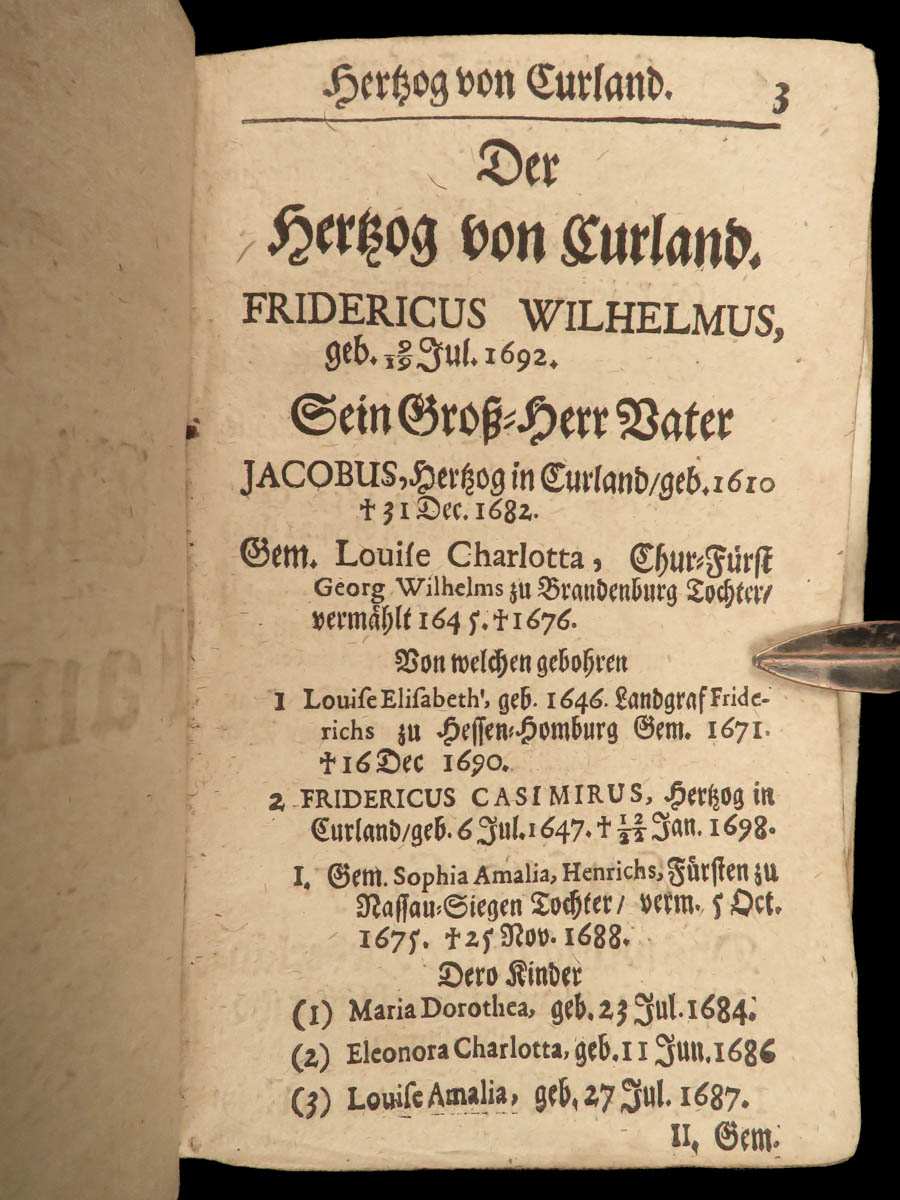 Hertzog von Curland. 3
Der
Hertzog von Curland.
FRIDERICUS WILHELMUS,
geb. 9/19 Jul. 1692.
Sein Groß-Herr Vater
JACOBUS, Hertzog in Curland/geb. 1610
† 31 Dec. 1682.
Gem. Louiſe Charlotta, Chur-Fürſt
Georg Wilhelms zu Brandenburg Tochter/
vermählt 1645. † 1676.
Von welchen gebohren
1 Louiſe Eliſabeth', geb. 1646. Landgraf Fride-
richs zu Heſſen-Homburg Gem. 1671.
† 16 Dec 1690.
2 FRIDERICUS CASIMIRUS, Hertzog in
Curland/geb. 6 Jul. 1647. † 12/22 Jan. 1698.
I. Gem. Sophia Amalia, Henrichs, Fürſten zu
Naſſau-Siegen Tochter/ verm. 5 Oct.
1675. † 25 Nov. 1688.
Dero Kinder
(1) Maria Dorothea, geb. 23 Jul. 1684.
(2) Eleonora Charlotta, geb. 11 Jun. 1686
(3) Louiſe Amalia, geb. 27 Jul. 1687.
II. Gem.